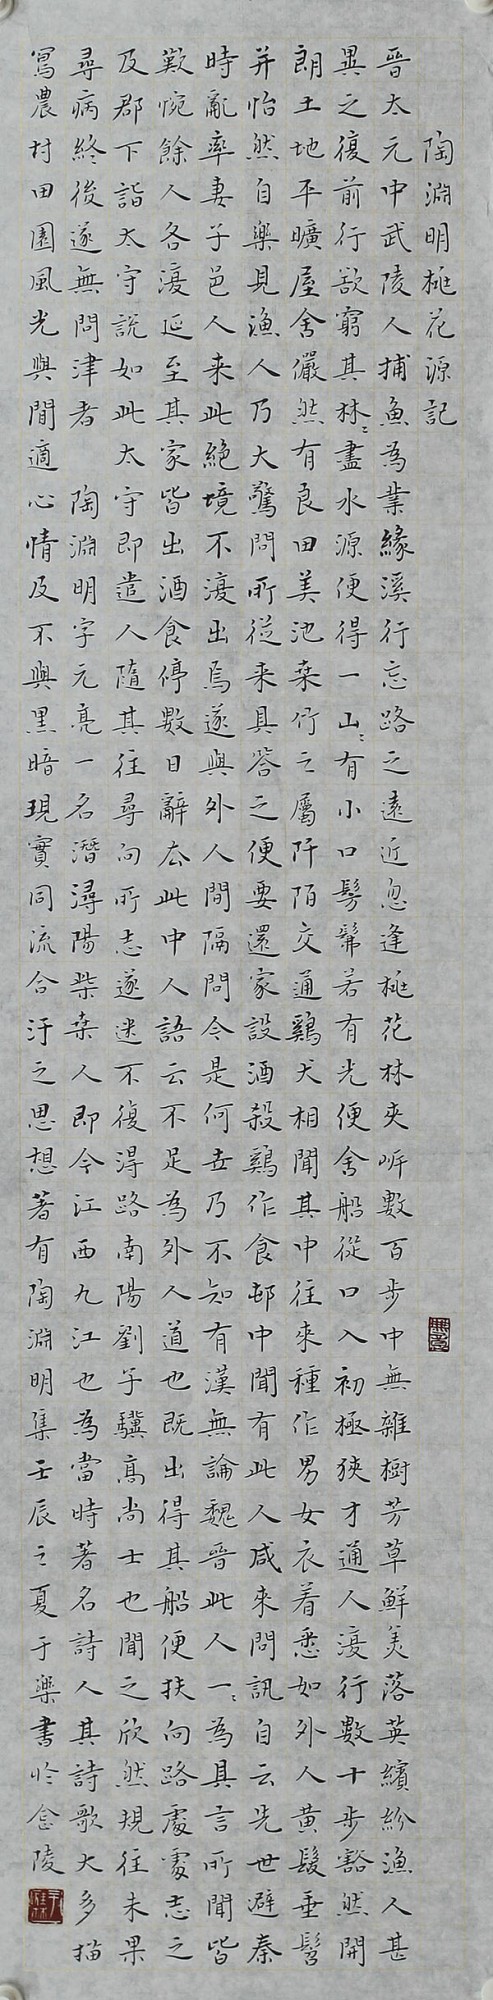 陶淵明桃花源記
晉太元中武陵人捕魚為業緣溪行忘路之遠近忽逢桃花林夾岍數百步中無雜樹芳草鮮美落英繽紛漁人甚
異之復前行欲窮其林〻盡水源便得一山〻有小口髣髴若有光便舍船從口入初極狹才通人復行數十步豁然開
朗土地平曠屋舍儼然有良田美池桒竹之屬阡陌交通鷄犬相聞其中往來種作男女衣着悉如外人黃髮垂髫
并怡然自樂見漁人乃大驚問所從来具答之便要還家設酒殺鷄作食邨中聞有此人咸來問訊自云先世避秦
時亂率妻子邑人来此絕境不復出焉遂與外人間隔問今是何世乃不知有漢無論魏晉此人一〻為具言所聞皆
歎惋餘人各復延至其家皆出酒食停數日辭去此中人語云不足為外人道也既出得其船便扶向路處處志之
及郡下詣太守說如此太守即遣人隨其往尋向所志遂迷不復得路南陽劉子驥高尚士也聞之欣然規往未果
尋病終後遂無問津者 陶淵明字元亮一名潛潯陽柴桒人即今江西九江也為當時著名詩人其詩歌大多描
寫農村田園風光與閒適心情及不與黑暗現實同流合汙之思想著有陶淵明集壬辰之夏于樂書於金陵